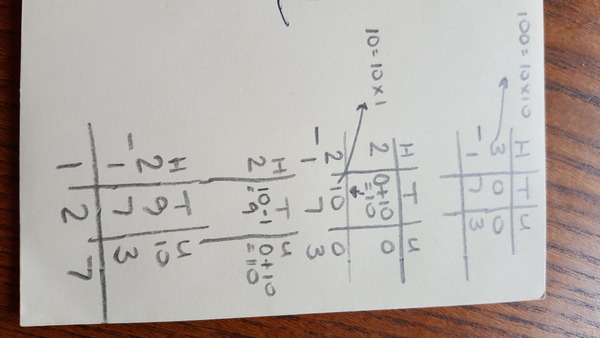 100=10×10
H T U
3 0 0
- 1 7 3
10=10×1
H T U
2 0+10 0
=10
2 10 0
- 1 7 3
H T U
2 10-1 0+10
=9 =10
H T U
2 9 10
- 1 7 3
1 2 7